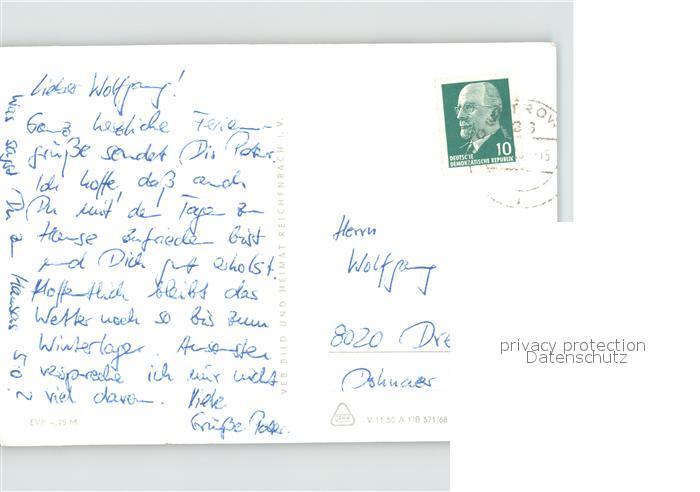 Lieber Wolfgang!
Ganz herzliche Ferien-
grüße sendet Dir Peter.
Ich hoffe, daß auch
Du mit den Tagen zu
Hause zufrieden bist
und Dich gut erholst.
Hoffentlich bleibt das
Wetter noch so bis zum
Winterlager. Ansonsten
verspreche ich mir nicht
zu viel davon. Liebe
Grüße Peter.
Was sagst Du zu
VEB BILD UND HEIMAT REICHENBACH I. V.
DEUTSCHE
DEMOKRATISCHE REPUBLIK
10
Herrn
Wolfgang
8020 Dre
Dohnaer
privacy protection
Datenschutz
EVP –,25 M
V 11 50 A 1/B 571/68